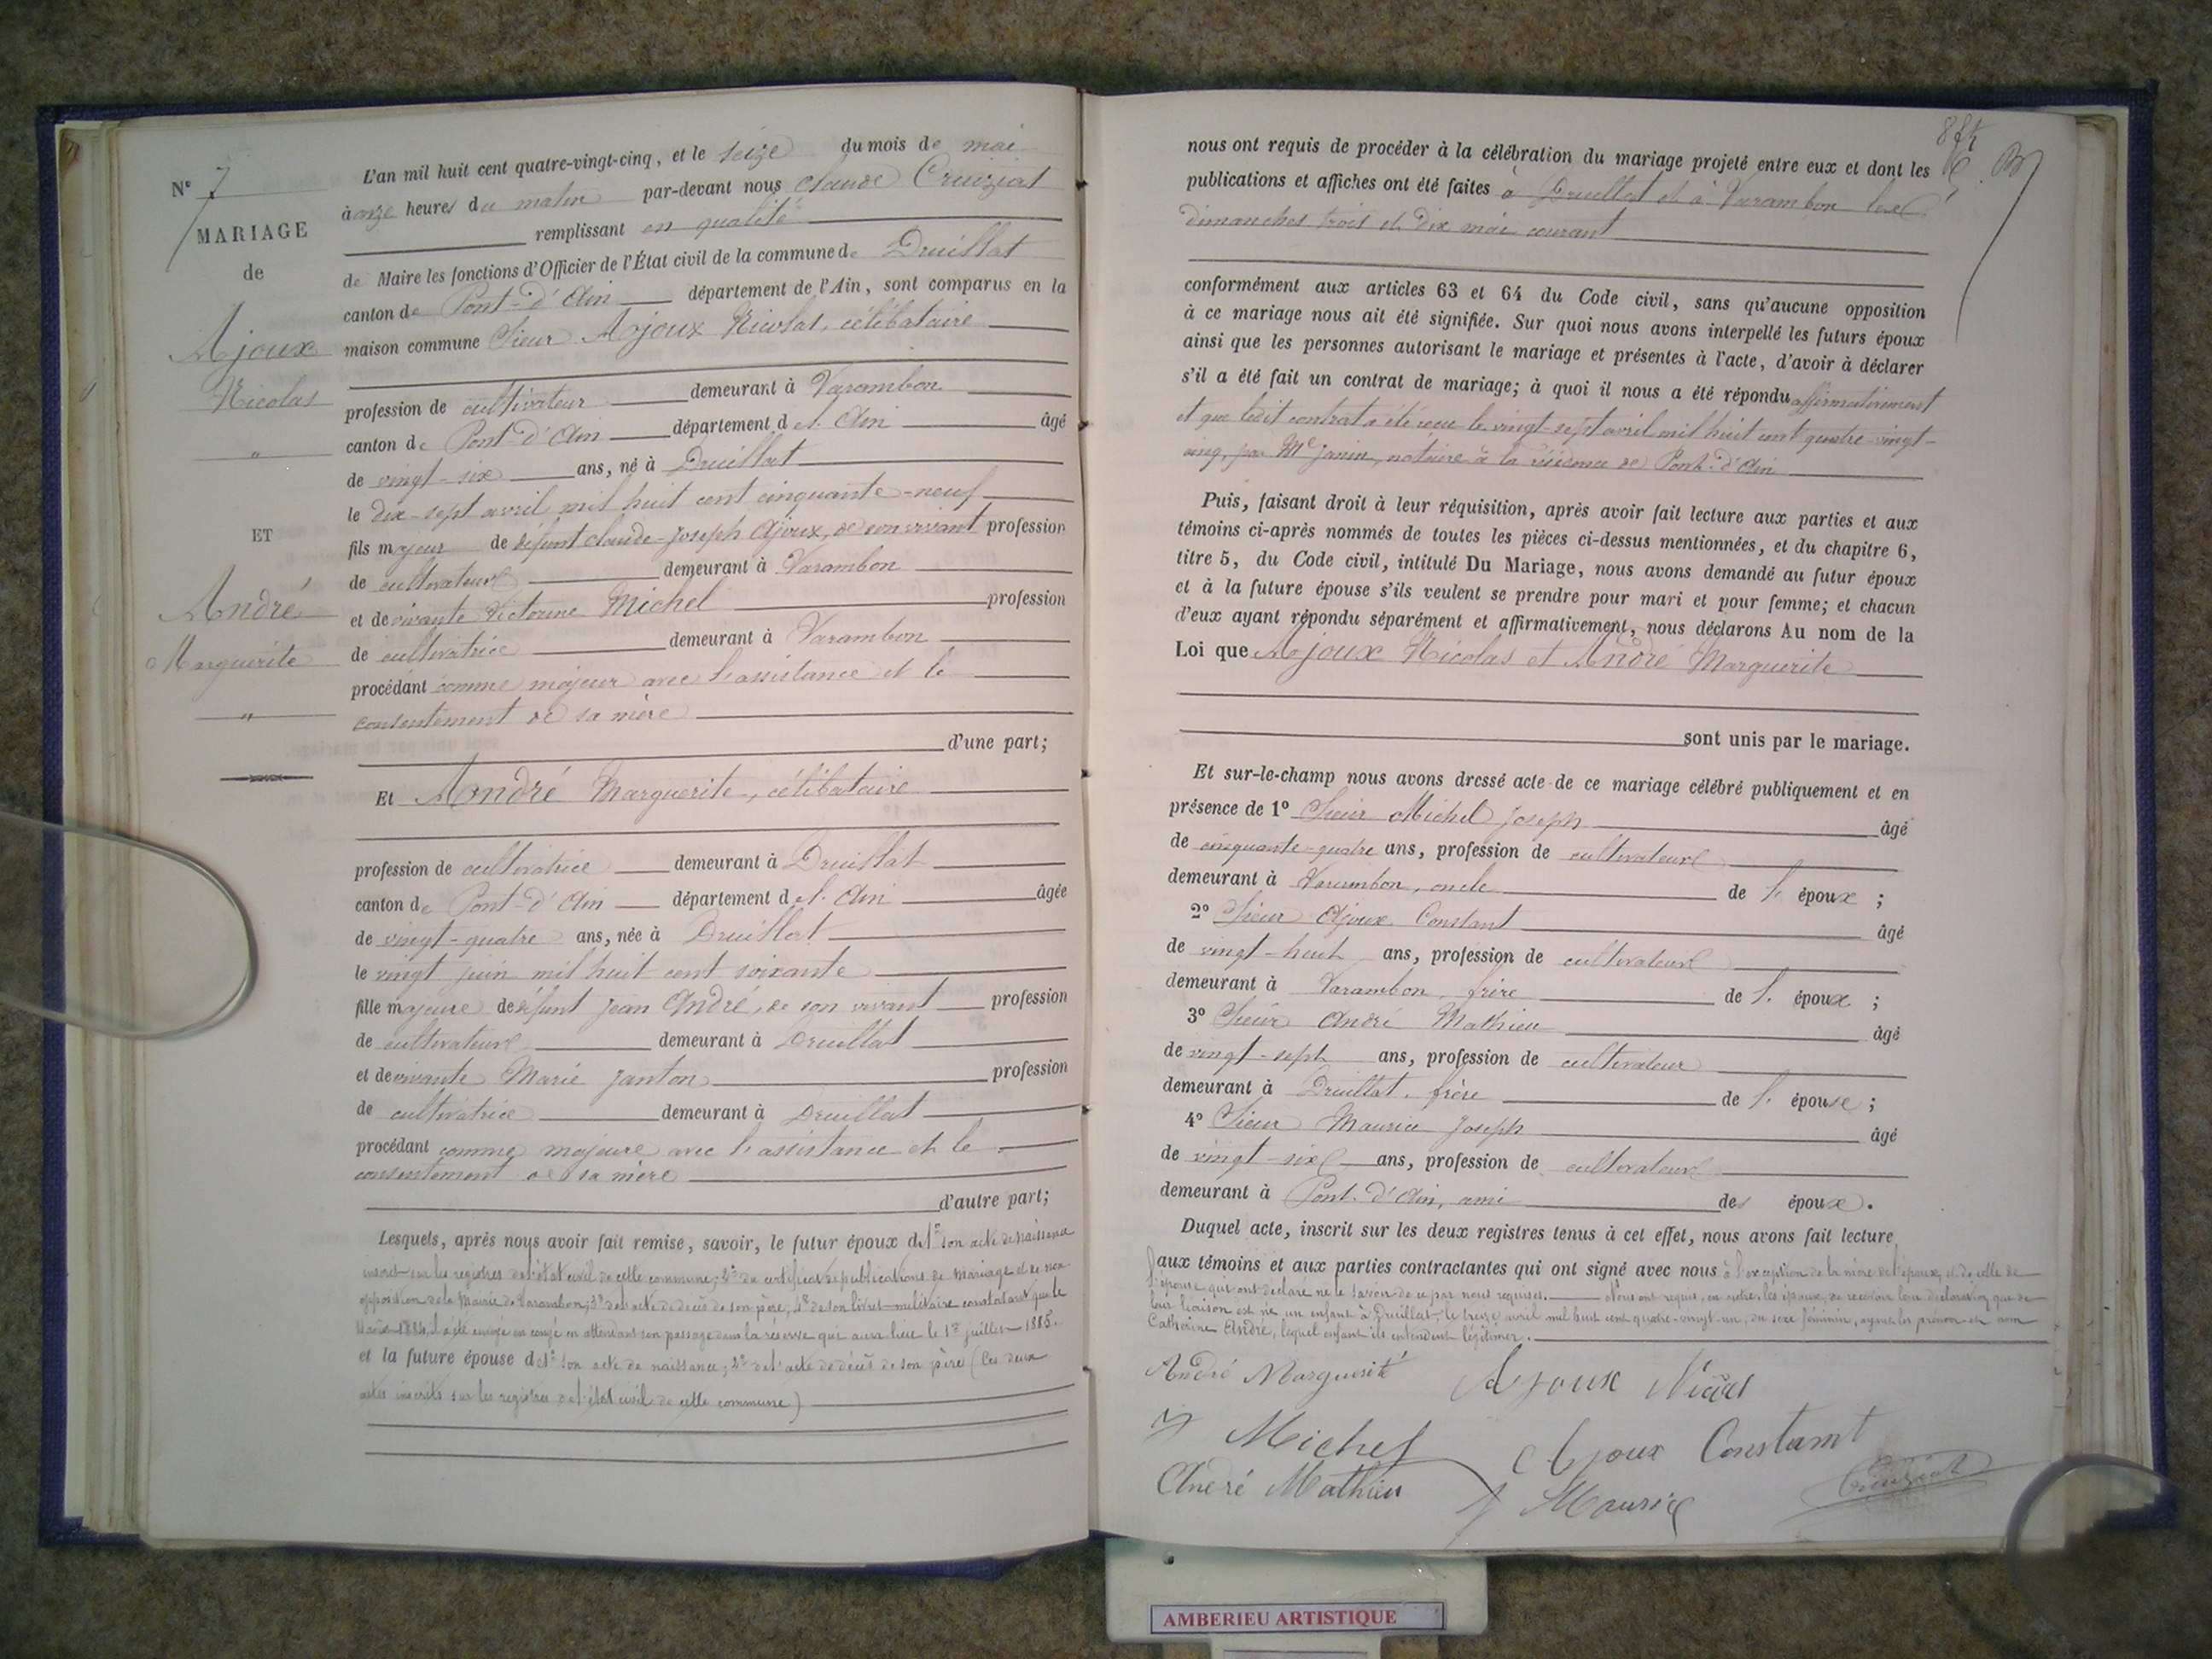 N° 7
MARIAGE
de
Ajoux
Nicolas
"
ET
André
Marguerite
"
L'an mil huit cent quatre-vingt-cinq, et le seize du mois de mai
à onze heures du matin par-devant nous Claude Cruiziat
remplissant en qualité
de Maire les fonctions d'Officier de l'État civil de la commune de Druillat
canton de Pont-d'Ain département de l'Ain, sont comparus en la
maison commune Sieur Ajoux Nicolas, célibataire
profession de cultivateur demeurant à Varambon
canton de Pont-d'Ain département de l'Ain âgé
de vingt-six ans, né à Druillat
le dix-sept avril mil huit cent cinquante-neuf
fils majeur de défunt Claude-Joseph Ajoux, de son vivant profession
de cultivateur demeurant à Varambon
et de vivante Victorine Michel profession
de cultivatrice demeurant à Varambon
procédant comme majeur avec l'assistance et le
consentement de sa mère
d'une part;
Et André Marguerite, célibataire
profession de cultivatrice demeurant à Druillat
canton de Pont-d'Ain département de l'Ain âgée
de vingt-quatre ans, née à Druillat
le vingt juin mil huit cent soixante
fille majeure de défunt Jean André, de son vivant profession
de cultivateur demeurant à Druillat
et de vivante Marie Janton profession
de cultivatrice demeurant à Druillat
procédant comme majeure avec l'assistance et le
consentement de sa mère
d'autre part;
Lesquels, après nous avoir fait remise, savoir, le futur époux de 1° son acte de naissance
inscrit sur les registres de l'état civil de cette commune; 2° du certificat de publications de mariage et de non
opposition de la Mairie de Varambon; 3° de l'acte de décès de son père; 4° de son livret militaire constatant que le
1884, il a été envoyé en congé en attendant son passage dans la réserve qui aura lieu le 1er juillet 1885.
et la future épouse de 1° son acte de naissance; 2° de l'acte de décès de son père (les deux
actes inscrits sur les registres de l'état civil de cette commune)
nous ont requis de procéder à la célébration du mariage projeté entre eux et dont les
publications et affiches ont été faites à Druillat et à Varambon les
dimanches trois et dix mai courant
conformément aux articles 63 et 64 du Code civil, sans qu'aucune opposition
à ce mariage nous ait été signifiée. Sur quoi nous avons interpellé les futurs époux
ainsi que les personnes autorisant le mariage et présentes à l'acte, d'avoir à déclarer
s'il a été fait un contrat de mariage; à quoi il nous a été répondu affirmativement
et que ledit contrat a été reçu le vingt-sept avril mil huit cent quatre-vingt-
cinq, par Me Janin, notaire à la résidence de Pont-d'Ain
Puis, faisant droit à leur réquisition, après avoir fait lecture aux parties et aux
témoins ci-après nommés de toutes les pièces ci-dessus mentionnées, et du chapitre 6,
titre 5, du Code civil, intitulé Du Mariage, nous avons demandé au futur époux
et à la future épouse s'ils veulent se prendre pour mari et pour femme; et chacun
d'eux ayant répondu séparément et affirmativement, nous déclarons Au nom de la
Loi que Ajoux Nicolas et André Marguerite
sont unis par le mariage.
Et sur-le-champ nous avons dressé acte de ce mariage célébré publiquement et en
présence de 1° Sieur Michel Joseph âgé
de cinquante-quatre ans, profession de cultivateur
demeurant à Varambon, oncle de l'époux;
2° Sieur Ajoux Constant âgé
de vingt-huit ans, profession de cultivateur
demeurant à Varambon, frère de l'époux;
3° Sieur André Mathieu âgé
de vingt-sept ans, profession de cultivateur
demeurant à Druillat, frère de l'épouse;
4° Sieur Maurice Joseph âgé
de vingt-six ans, profession de cultivateur
demeurant à Pont-d'Ain, ami des époux.
Duquel acte, inscrit sur les deux registres tenus à cet effet, nous avons fait lecture
aux témoins et aux parties contractantes qui ont signé avec nous à l'exception de la mère de l'époux, et de celle de
l'épouse, qui ont déclaré ne le savoir de ce par nous requises. Nous ont requis, en outre, les époux, de recevoir leur déclaration que de
leur liaison est né un enfant à Druillat, le treize avril mil huit cent quatre-vingt-un, du sexe féminin, ayant les prénom et nom
Catherine André, lequel enfant ils entendent légitimer.
André Marguerite Ajoux Nicolas
Michel Ajoux Constant
André Mathieu J Maurice Cruiziat
AMBERIEU ARTISTIQUE